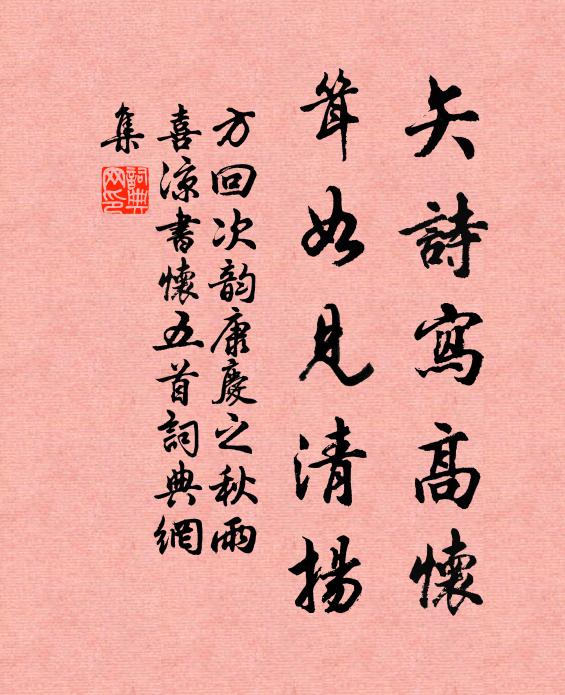 矢詩寫高懷
聳如見清揚
方回次韵康慶之秋雨
喜凉書懷五首詞典網
集
詞典
网印